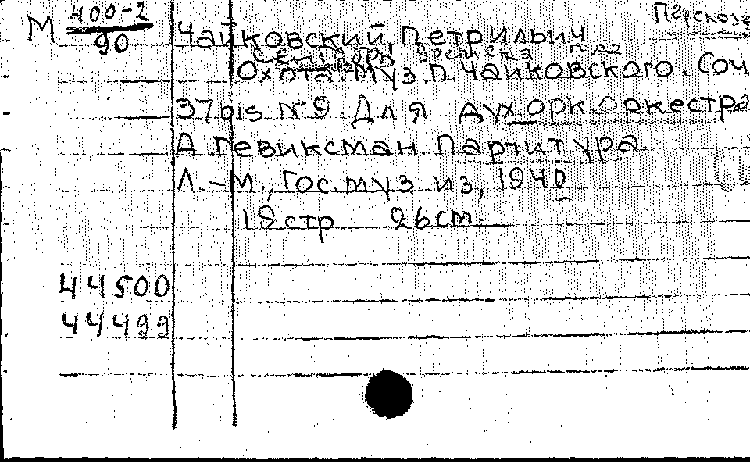 М 400-2
90
Чайковский, Петр Ильич
Охота муз. П. Чайковского. Соч
37bis №9 Для дух орк оркестра
А Гевиксман Партитура
Л.-М., Гос. муз из, 1940
18 стр 26 cm.
44500
44499